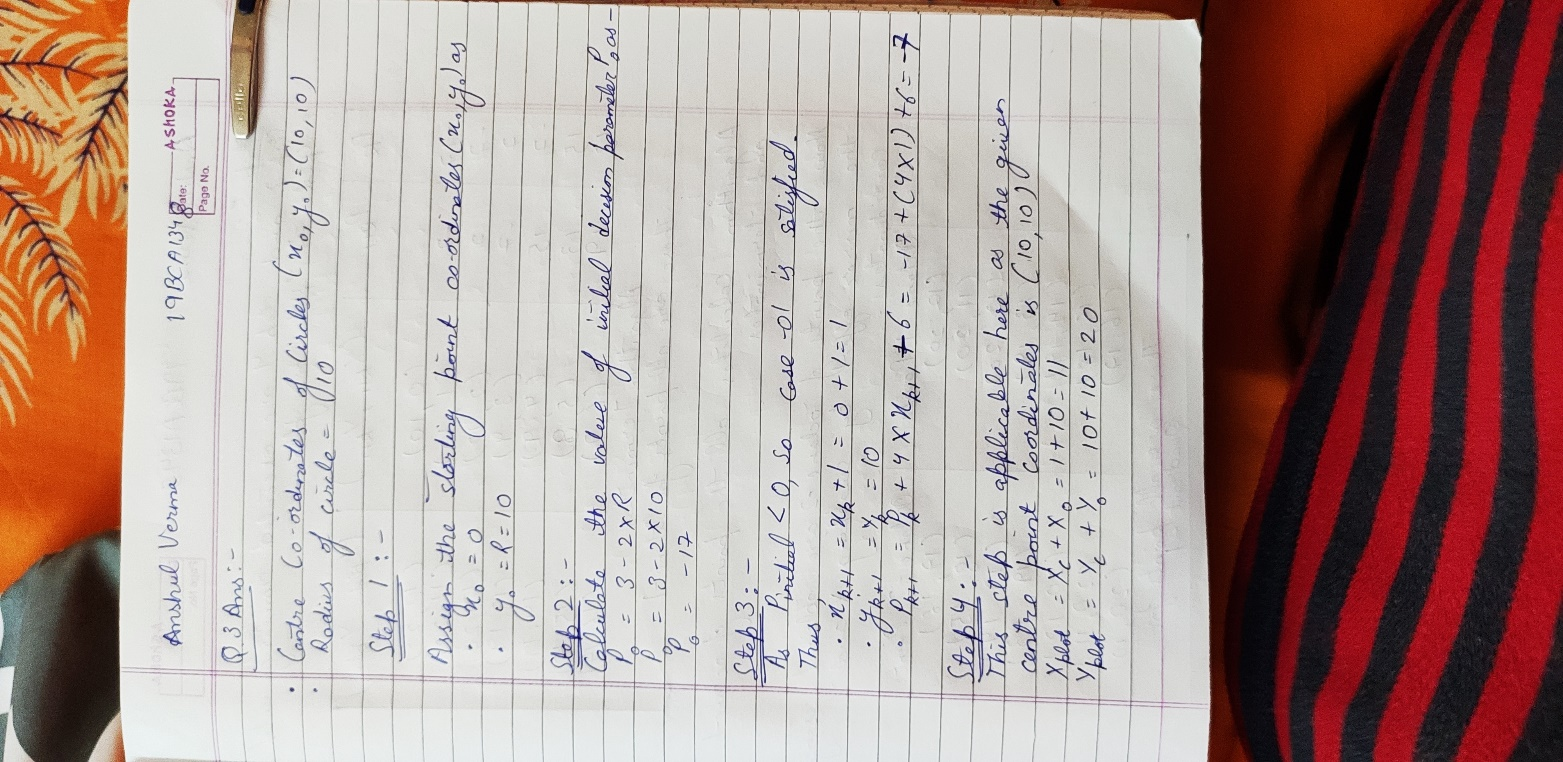 Anshul Verma 19BCA1348
ASHOKA
Date:
Page No.
Q3 Ans:-
• Centre Co-ordinates of Circles (x₀, y₀) = (10, 10)
• Radius of circle = 10
Step 1 :-
Assign the starting point co-ordinates (x₀, y₀) as
• x₀ = 0
• y₀ = R = 10
Step 2 :-
Calculate the value of initial decision parameter P₀ as -
P₀ = 3 - 2 x R
P₀ = 3 - 2 x 10
P₀ = -17
Step 3 :-
As Pinitial < 0, so case -01 is satisfied.
Thus
• xₖ₊₁ = xₖ + 1 = 0 + 1 = 1
• yₖ₊₁ = yₖ = 10
• Pₖ₊₁ = Pₖ + 4 x xₖ₊₁ + 6 = -17 + (4 x 1) + 6 = -7
Step 4 :-
This step is applicable here as the given
centre point coordinates is (10, 10)
Xplot = Xc + X₀ = 1 + 10 = 11
Yplot = Yc + Y₀ = 10 + 10 = 20